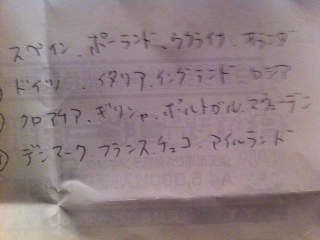 スペイン．ポーランド．ウクライナ．オランダ
ドイツ．イタリア．イングランド．ロシア
クロアチア．ギリシャ．ポルトガル．スウェーデン
デンマーク フランス．チェコ．アイルランド